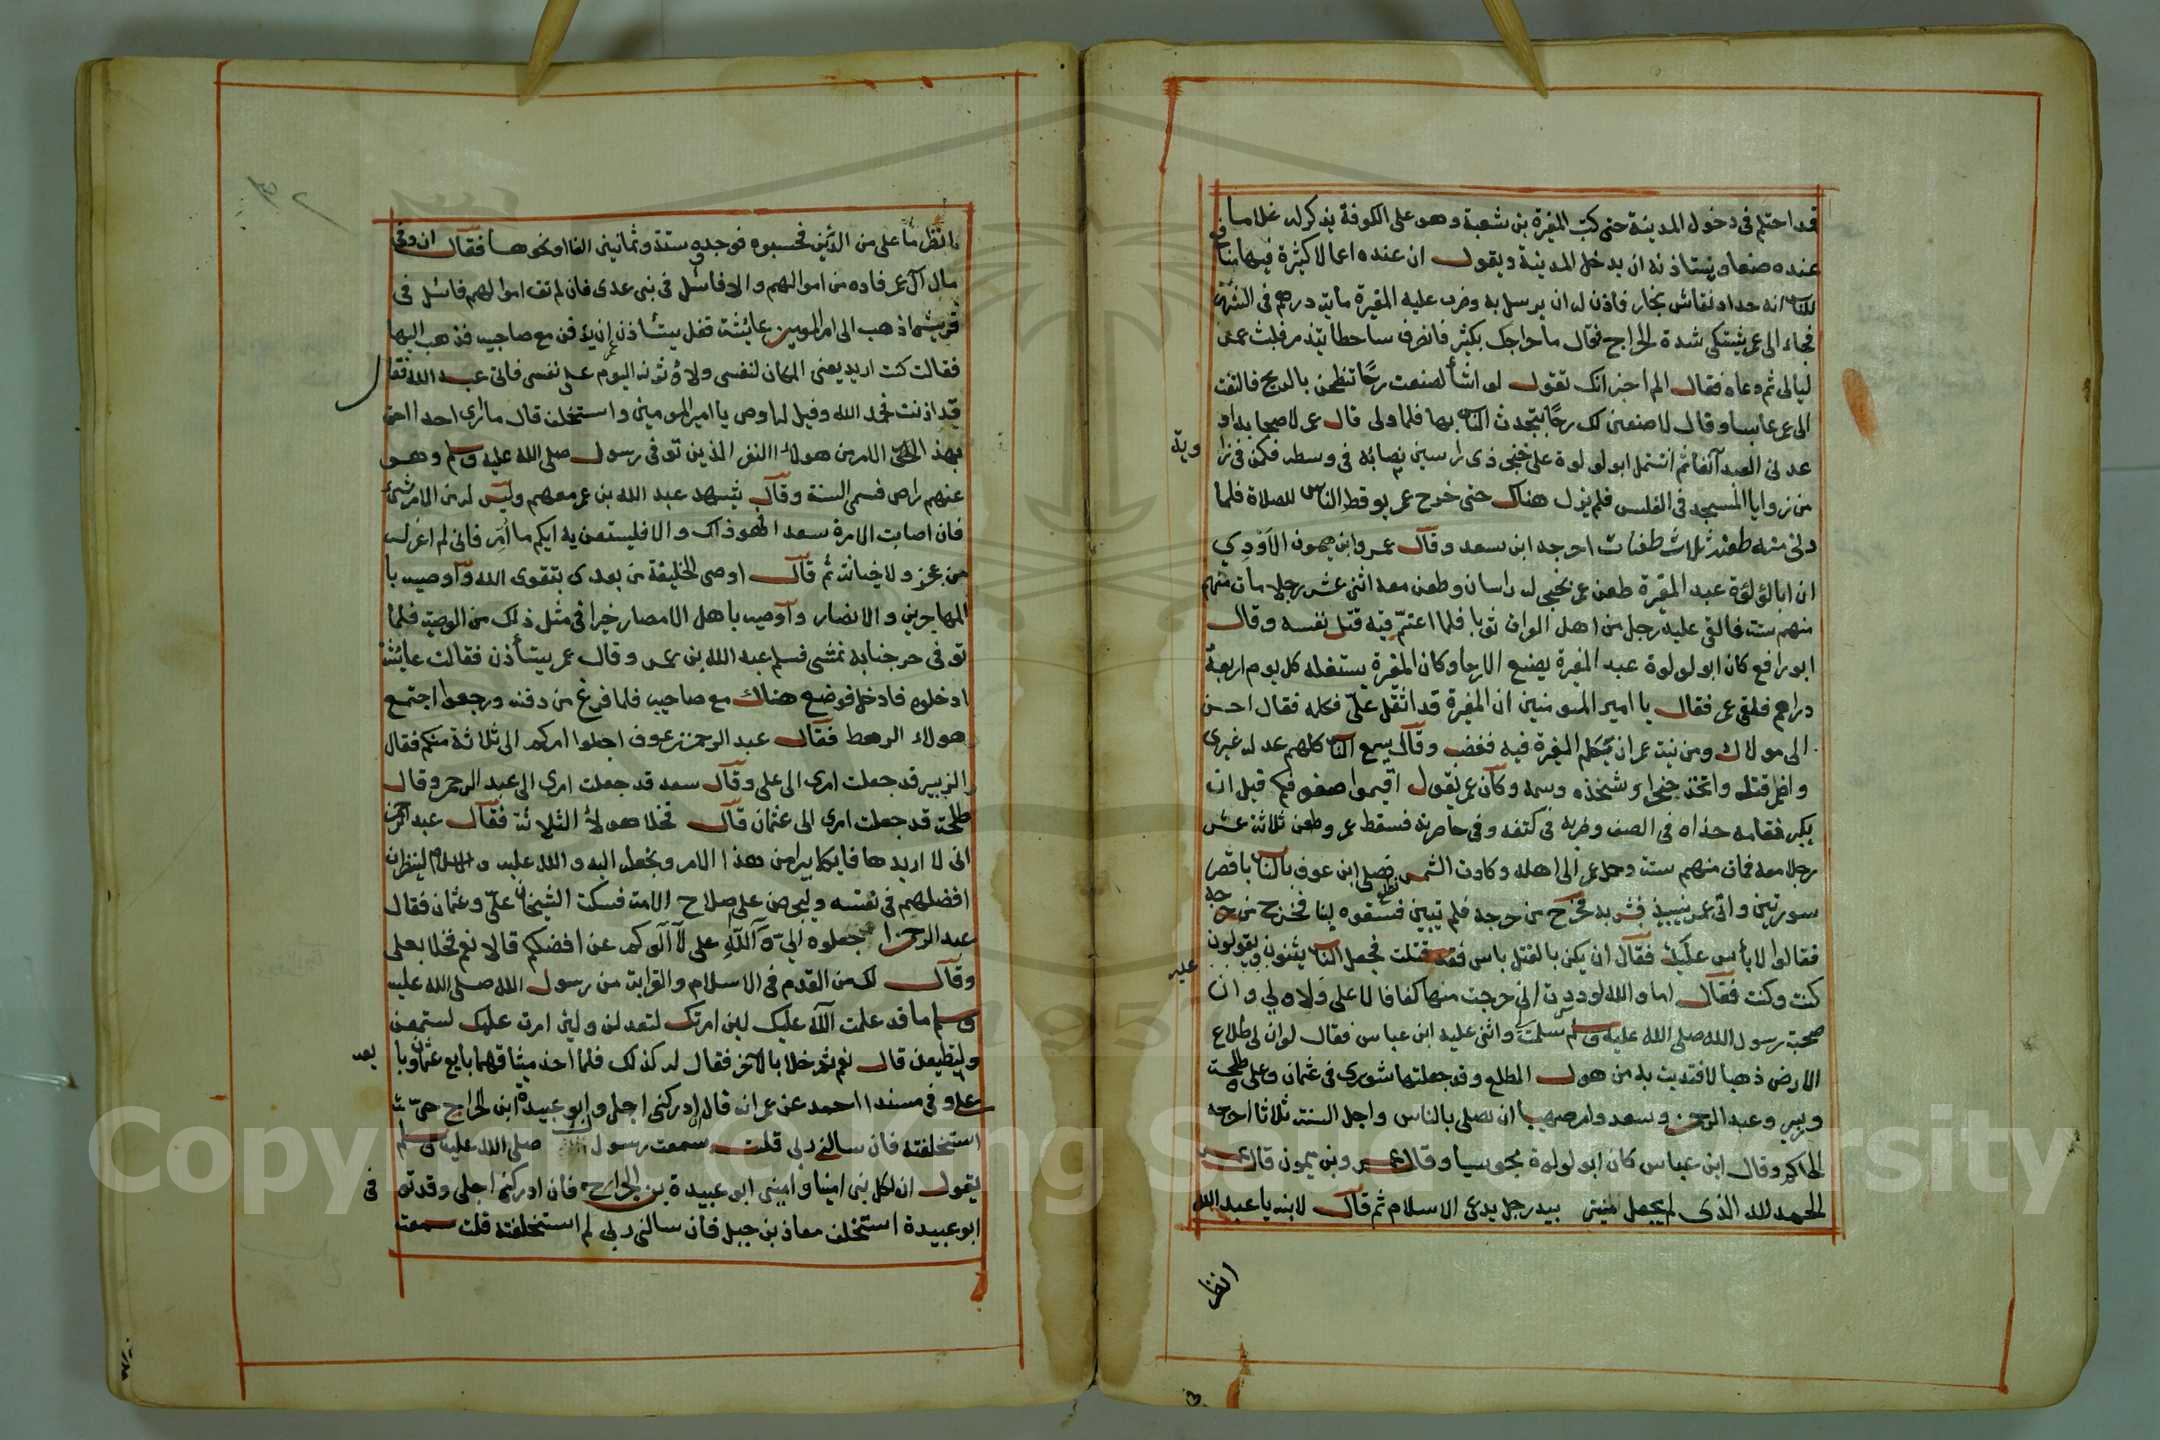 قد احتلم فى دخول المدينة حتى كتب المغيرة بن شعبة وهو على الكوفة يذكر له غلاما
عنده صنعا ويستاذنه ان يدخل المدينة ويقول ان عنده اعمالا كثيرة فيها منافع
للناس انه حداد نقاش نجار فاذن له ان يرسل به وضرب عليه المغيرة ماية درهم فى الشهر
فجاء الى عمر يشتكى شدة الخراج فقال ما خراجك بكثير فانصرف ساخطا يتذمر فلبث عمر
ليالى ثم دعاه فقال الم اخبر انك تقول لو اشأ لصنعت رحًا تطحن بالريح فالتفت
الى عمر عابسا وقال لاصنعن لك رحًا يتحدث الناس بها فلما ولى قال عمر لاصحابه او
عدنى العبد آنفا ثم اشتمل ابو لولوة على خنجر ذى راسين نصابه فى وسطه فكمن فى زا
وية
من زوايا المسجد فى الغلس فلم يزل هناك حتى خرج عمر يوقظ الناس للصلاة فلما
دنى منه طعنه ثلاث طعنات اخرجه ابن سعد وقال عمرو ابن ميمون الاَوْدِي
ان ابا لؤلؤة عبد المغيرة طعن عمر بخنجر له راسان وطعن معه اثنى عشر رجلا مات منهم
منهم ستة فالقى عليه رجل من اهل العراق ثوبا فلما اغتمّ فيه قتل نفسه وقال
ابو رافع كان ابو لولوة عبد المغيرة يصنع الارحا وكان المغيرة يستغله كل يوم اربعة
دراهم فلقى عمر فقال يا امير المومنين ان المغيرة قد اثقل علىّ فكلمه فقال احسن
الى مولاك ومن نية عمر ان يكلم المغيرة فيه فغضب وقال يسع الناس كلهم عدله غيرى
واضمر قتله واتخذ خنجرا وشحذه وسمه وكان عمر يقول اقيموا صفوفكم قبل ان
يكبر فقام حذاه فى الصف وضربه فى كتفه وفى خاصرته فسقط عمر وطعن ثلاثة عشر
رجلا معه فمات منهم ستة وحمل عمر الى اهله وكادت الشمس تطلع فصلى ابن عوف بالناس باقصر
سورتين واتى عمر بنبيذ فشربه فخرج من جرحه فلم يتبين فسقوه لبنا فخرج من جرحه
فقالوا لا بأس عليك فقال ان يكن بالقتل باس فقد قتلت فجعل الناس يثنون عليه ويقولون
كنت وكنت فقال اما والله لوددت انى خرجت منها كفافا لا على ولا لي وان
صحبة رسول الله صلى الله عليه وسلم سلمت واثنى عليه ابن عباس فقال لو ان لى طلاع
الارض ذهبا لافتديت به من هول المطلع وقد جعلتها شورى فى عثمان وعلى وطلحة
وزبير وعبد الرحمن وسعد وامر صهيبا ان يصلى بالناس واجل الستة ثلاثا اخرجه
الحاكم وقال ابن عباس كان ابو لولوة مجوسيا وقال عمرو بن ميمون قال عمر
الحمد لله الذى لم يجعل منيتى بيد رجل يدعى الاسلام ثم قال لابنه يا عبد الله
انظر
انظر ما على من الدين فحسبوه فوجدوه ستة وثمانين الفا او نحوها فقال ان وفى
مال آل عمر فاده من اموالهم والا فاسئل فى بنى عدى فان لم تف اموالهم فاسئل فى
قريش اذهب الى ام المومنين عايشة فقل يستأذن عمر ان يدفن مع صاحبيه فذهب اليها
فقالت كنت اريد يعنى المكان لنفسى ولاؤثرنه اليوم على نفسى فاتى عبد الله فقال
قد اذنت فحمد الله وقيل له اوص يا امير المومنين واستخلف قال ما ارى احدا احق
بهذا الامر من هولاء النفر الذين توفى رسول صلى الله عليه وسلم وهو
عنهم راض فسمى الستة وقال يشهد عبد الله بن عمر معهم وليس له من الامر شئ
فان اصابت الامرة سعدا فهو ذاك والا فليستعن به ايكم ما اُمّر فانى لم اعزله
من عجز ولا خيانة ثم قال اوصى الخليفة من بعدى بتقوى الله واوصيه با
المهاجرين والانصار واوصيه باهل الامصار خيرا فى مثل ذلك من الوصية فلما
توفى خرجنا به نمشى فسلم عبد الله بن عمر وقال عمر يستأذن فقالت عايشة
ادخلوه فادخل فوضع هناك مع صاحبيه فلما فرغ من دفنه ورجعوا اجتمع
هولاء الرهط فقال عبد الرحمن بن عوف اجعلوا امركم الى ثلاثة منكم فقال
الزبير قد جعلت امرى الى على وقال سعد قد جعلت امرى الى عبد الرحمن وقال
طلحة قد جعلت امرى الى عثمان قال فخلا هولاء الثلاثة فقال عبد الرحمن
انى لا اريدها فايكما يبرا من هذا الامر ونجعله اليه والله عليه والاسلام لينظرن
افضلهم فى نفسه وليحرصن على صلاح الامة فسكت الشيخان علىّ وعثمان فقال
عبد الرحمن اجعلوه الىّ والله على لا آلوكم عن افضلكم قالا نعم فخلا بعلى
وقال لك من القدم فى الاسلام والقرابة من رسول الله صلى الله عليه
وسلم ما قد علمت الله عليك لئن امرتك لتعدلن ولئن امرت عليك لتسمعن
ولتطيعن قال نعم ثم خلا بالآخر فقال له كذلك فلما اخذ ميثاقهما بايع عثمان وبا
يعه
على وفى مسند احمد عن عمر انه قال ان ادركنى اجلى وابو عبيدة ابن الجراح حيّ
استخلفته فان سالنى ربى قلت سمعت رسول الله صلى الله عليه وسلم
يقول ان لكل نبى امينا وامينى ابو عبيدة بن الجراح فان ادركنى اجلى وقد تو
فى
ابو عبيدة استخلف معاذ بن جبل فان سالنى ربى لم استخلفته قلت سمعت
Copyright © King Saud University
1957